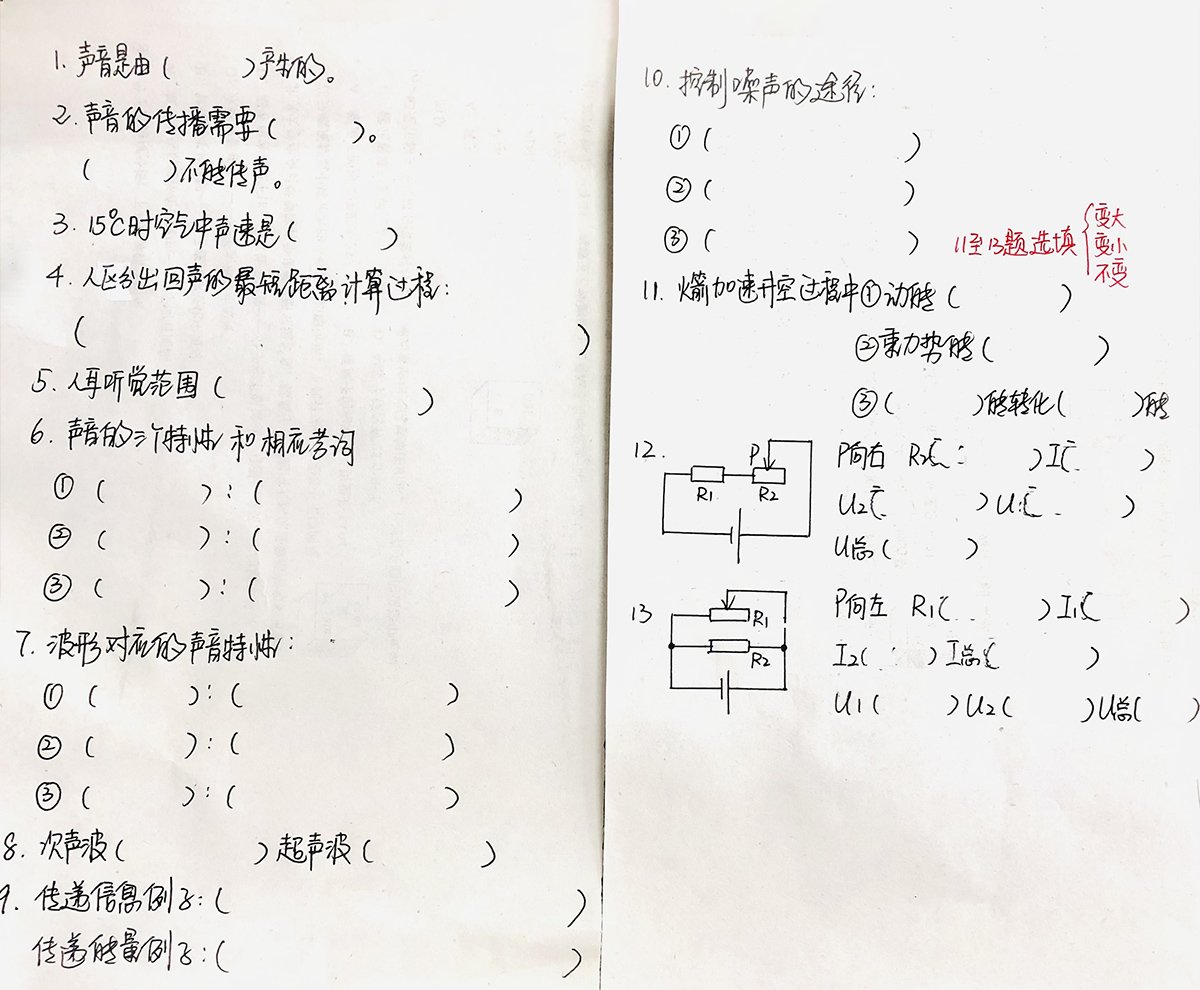 1. 声音是由（ ）产生的。
2. 声音的传播需要（ ）。
（ ）不能传声。
3. 15℃时空气中声速是（ ）
4. 人区分出回声的最短距离计算过程：
（ ）
5. 人耳听觉范围（ ）
6. 声音的三个特性和相应苦词
①（ ）：（ ）
②（ ）：（ ）
③（ ）：（ ）
7. 波形对应的声音特性：
①（ ）：（ ）
②（ ）：（ ）
③（ ）：（ ）
8. 次声波（ ）超声波（ ）
9. 传递信息例子：（ ）
传递能量例子：（ ）
10. 控制噪声的途径：
①（ ）
②（ ）
③（ ）
11至13题选填
变大
变小
不变
11. 火箭加速升空过程中①动能（ ）
②重力势能（ ）
③（ ）能转化（ ）能
12.
P
R1
R2
P向右 R2（ ）I（ ）
U2（ ）U1（ ）
U总（ ）
13
R1
R2
P向左 R1（ ）I1（ ）
I2（ ）I总（ ）
U1（ ）U2（ ）U总（ ）